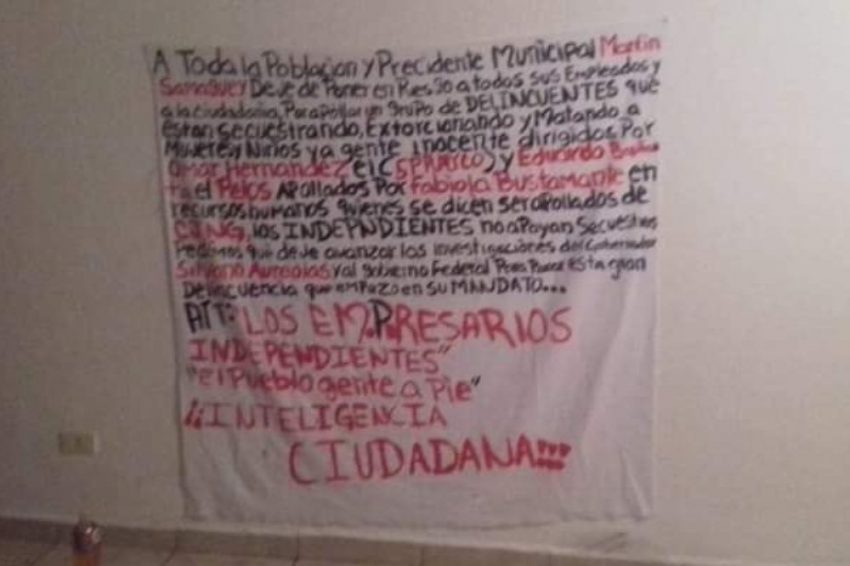 A Toda la Poblacion y Precidente Municipal Martin
Samaguey Deje de Poner en Riesgo a todos sus Empleados y
a la ciudadania, Para apollar un grupo de DELINCUENTES que
estan secuestrando, Extorcionando y Matando a
Mujeres y Niños ya gente inocente dirigidos Por
Omar Hernandez el ( ) y Eduardo
el Pelos Apollados Por Fabiola Bustamante en
recursos humanos quienes se dicen ser apollados de
CJNG, los INDEPNDIENTES no apoyan Secuestros
Pedimos que deje avanzar las investigaciones del Gobernador
Silvano Aureolas y al gobierno Federal Para Parar esta gran
Delincuencia que empezo en su MANDATO...
ATT: LOS EM.P.RESARIOS
INDEPENDIENTES"
"el Pueblo gente a Pie"
¡¡INTELIGENCIA
CIUDADANA!!!